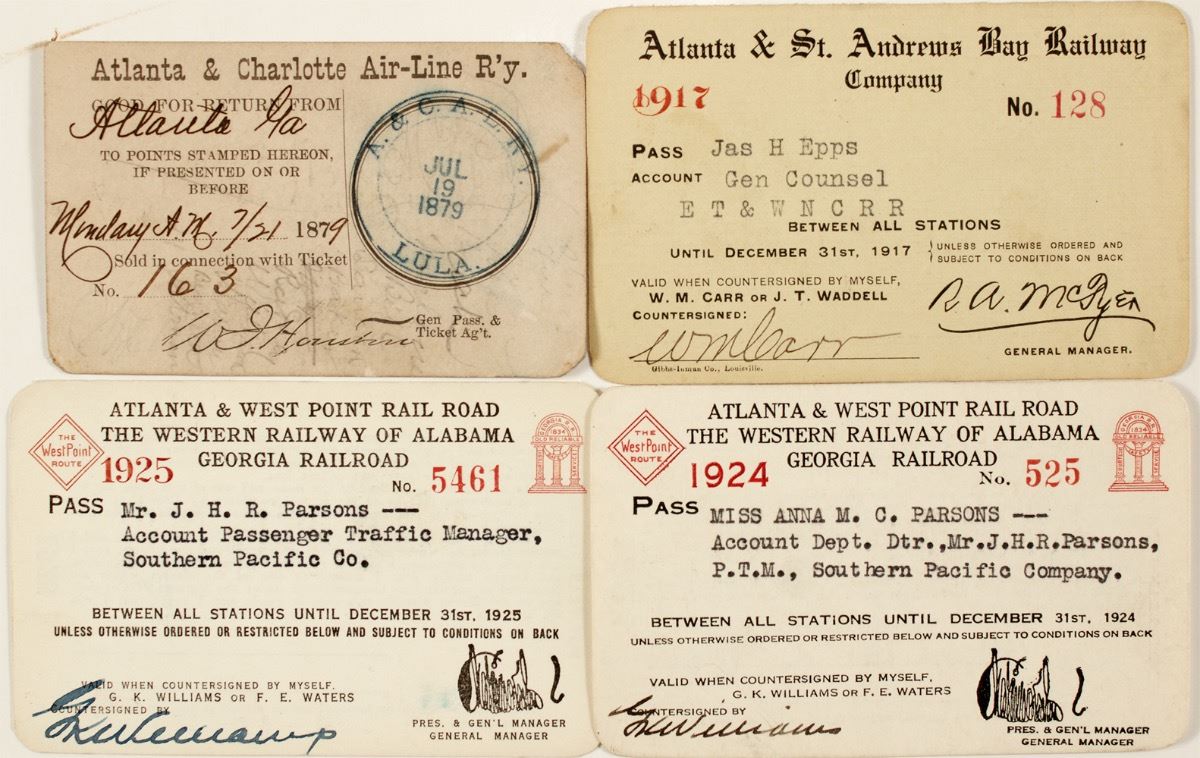 Atlanta & Charlotte Air-Line R'y.
GOOD FOR RETURN FROM
Atlanta Ga
TO POINTS STAMPED HEREON,
IF PRESENTED ON OR
BEFORE
Monday A.M. 7/21 1879
Sold in connection with Ticket
No. 163
Gen Pass. &
Ticket Ag't.
A. & C. A. L. R'Y.
JUL
19
1879
LULA.
Atlanta & St. Andrews Bay Railway
Company
1917
No. 128
PASS Jas H Epps
ACCOUNT Gen Counsel
E T & W N C R R
BETWEEN ALL STATIONS
UNTIL DECEMBER 31ST, 1917
UNLESS OTHERWISE ORDERED AND
SUBJECT TO CONDITIONS ON BACK
VALID WHEN COUNTERSIGNED BY MYSELF,
W. M. CARR OR J. T. WADDELL
COUNTERSIGNED:
W M Carr
GENERAL MANAGER.
Gibbs-Inman Co., Louisville.
ATLANTA & WEST POINT RAIL ROAD
THE WESTERN RAILWAY OF ALABAMA
GEORGIA RAILROAD
THE
West Point
ROUTE
GEORGIA R.R.
1834
OLD RELIABLE
1925
No. 5461
PASS Mr. J. H. R. Parsons ---
Account Passenger Traffic Manager,
Southern Pacific Co.
BETWEEN ALL STATIONS UNTIL DECEMBER 31ST, 1925
UNLESS OTHERWISE ORDERED OR RESTRICTED BELOW AND SUBJECT TO CONDITIONS ON BACK
VALID WHEN COUNTERSIGNED BY MYSELF,
G. K. WILLIAMS OR F. E. WATERS
COUNTERSIGNED BY
GK Williams
PRES. & GEN'L MANAGER
GENERAL MANAGER
ATLANTA & WEST POINT RAIL ROAD
THE WESTERN RAILWAY OF ALABAMA
GEORGIA RAILROAD
THE
West Point
ROUTE
GEORGIA R.R.
1834
OLD RELIABLE
1924
No. 525
PASS MISS ANNA M. C. PARSONS ---
Account Dept. Dtr.,Mr.J.H.R.Parsons,
P.T.M., Southern Pacific Company.
BETWEEN ALL STATIONS UNTIL DECEMBER 31ST, 1924
UNLESS OTHERWISE ORDERED OR RESTRICTED BELOW AND SUBJECT TO CONDITIONS ON BACK
VALID WHEN COUNTERSIGNED BY MYSELF,
G. K. WILLIAMS OR F. E. WATERS
COUNTERSIGNED BY
GK Williams
PRES. & GEN'L MANAGER
GENERAL MANAGER